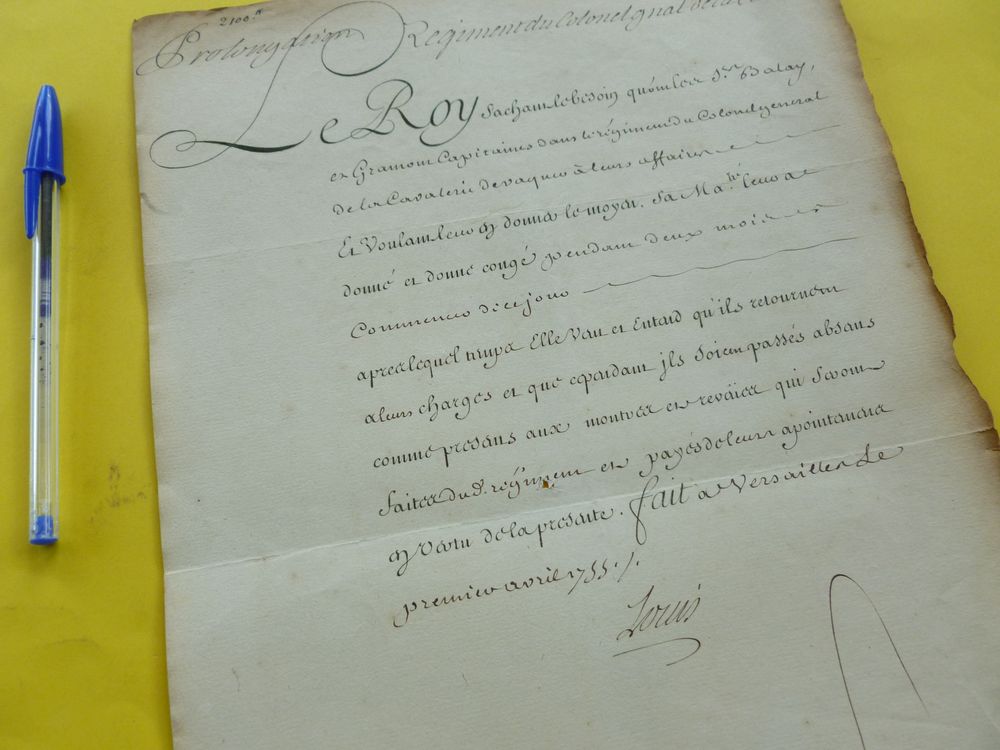 2100.tt
Prolongation Regiment du Colonel gnal de la
Le Roy sachant le besoin qu'ont les Srs Balay,
et Gramont Capitaines dans le régiment du Colonel general
de la Cavalerie de vaquer à leurs affaires
Et Voulant leur en donner le moyen. Sa Ma.té leur a
donné et donne congé pendant deux mois
Commencer de ce jour
apres lequel temps Elle Veut et Entend qu'ils retournent
a leurs charges et que cependant jls soient passés absans
comme presens aux montres et revües qui seront
faites dud. régiment et payés de leurs apointemens
en vertu de la presente. fait a Versailles le
premier avril 1755./.
Louis